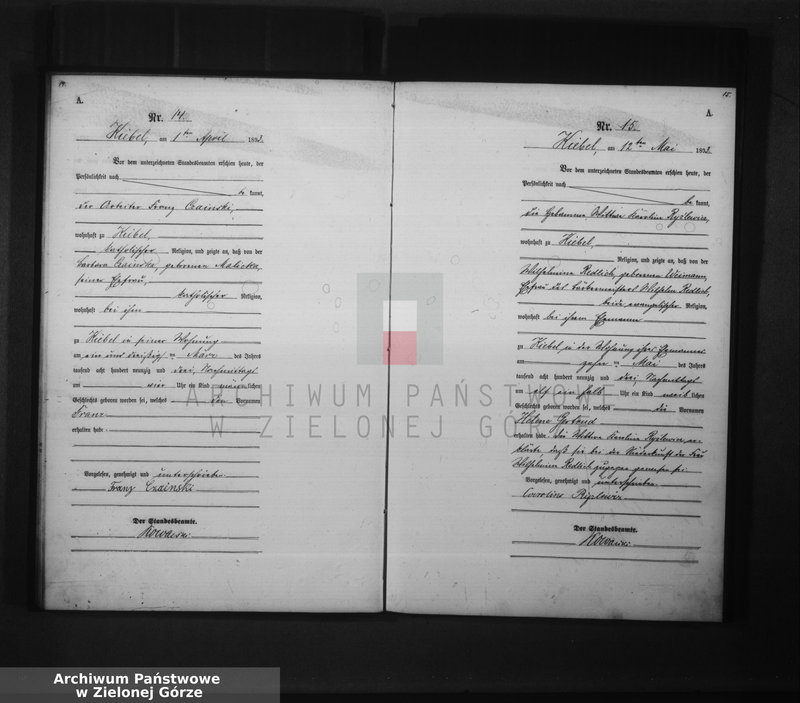 14.
A.
Nr. 14.
Kiebel, am 1ten April 1893.
Vor dem unterzeichneten Standesbeamten erschien heute, der
Persönlichkeit nach
be kannt,
der Arbeiter Franz Czainski,
wohnhaft zu Kiebel,
katholischer Religion, und zeigte an, daß von der
Barbara Czainska, geborenen Malicka,
seiner Ehefrau,
katholischer Religion,
wohnhaft bei ihm
zu Kiebel in seiner Wohnung
am ein und dreißig ten März des Jahres
tausend acht hundert neunzig und drei, Nachmittags
um vier Uhr ein Kind männlichen
Geschlechts geboren worden sei, welches den Vornamen
Franz
erhalten habe.
Vorgelesen, genehmigt und unterschrieben
Franz Czainski
Der Standesbeamte.
Kowalski
15.
A.
Nr. 15.
Kiebel, am 12ten Mai 1893.
Vor dem unterzeichneten Standesbeamten erschien heute, der
Persönlichkeit nach
be kannt,
die Hebamme Wittwe Karoline
wohnhaft zu Kiebel,
Religion, und zeigte an, daß von der
Wilhelmine Redlich, geborenen Weimann,
Ehefrau des Wilhelm Redlich,
beide evangelischer Religion,
wohnhaft bei ihrem Ehemann
zu Kiebel, in der Wohnung ihres Ehemannes
am zehn ten Mai des Jahres
tausend acht hundert neunzig und drei, Nachmittags
um elf ein halb Uhr ein Kind weib lichen
Geschlechts geboren worden sei, welches die Vornamen
Helene Gertrud
erhalten habe. Die Wittwe Karoline er-
klärte, daß sie bei der Niederkunft der Frau
Wilhelmine Redlich zugegen gewesen sei.
Vorgelesen, genehmigt und unterschrieben
Der Standesbeamte.
Kowalski
ARCHIWUM PAŃSTWOWE
W ZIELONEJ GÓRZE
Archiwum Państwowe
w Zielonej Górze